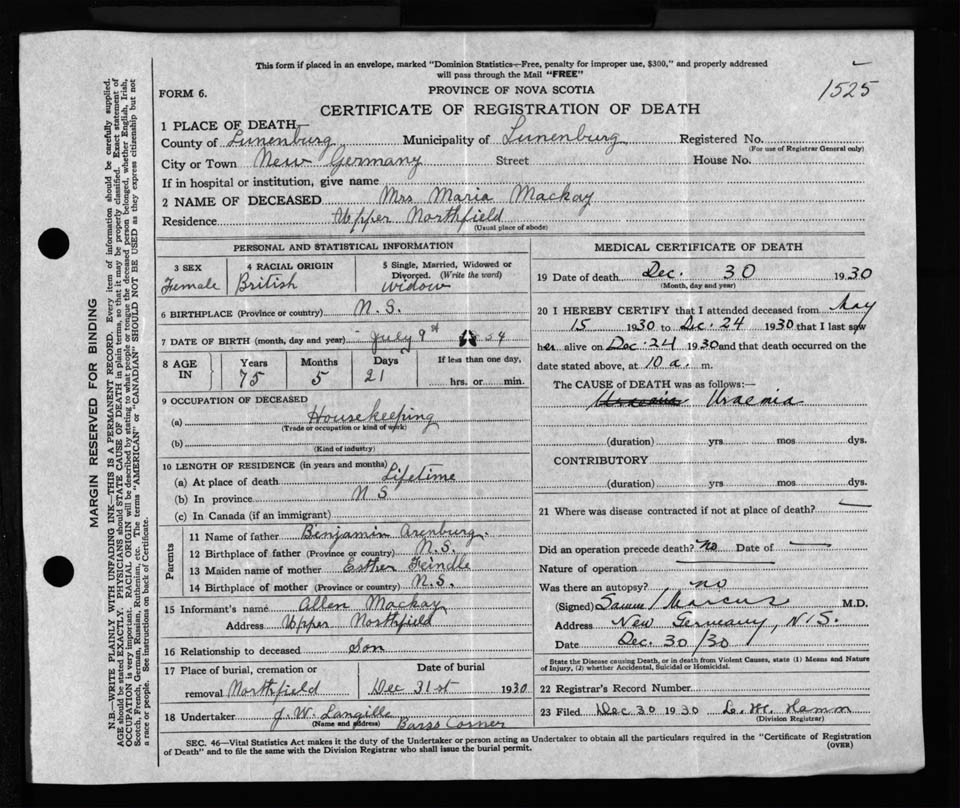 This form if placed in an envelope, marked "Dominion Statistics—Free, penalty for improper use, $300," and properly addressed
will pass through the Mail "FREE"
FORM 6.
PROVINCE OF NOVA SCOTIA
1525
CERTIFICATE OF REGISTRATION OF DEATH
1 PLACE OF DEATH—
County of Lunenburg Municipality of Lunenburg Registered No.
(For use of Registrar General only)
City or Town New Germany Street House No.
If in hospital or institution, give name
2 NAME OF DECEASED Mrs Maria Mackay
Residence Upper Northfield
(Usual place of abode)
PERSONAL AND STATISTICAL INFORMATION
3 SEX 4 RACIAL ORIGIN 5 Single, Married, Widowed or
Divorced. (Write the word)
Female British widow
6 BIRTHPLACE (Province or country) N.S.
7 DATE OF BIRTH (month, day and year) July 9th
8 AGE IN Years Months Days If less than one day,
75 5 21 hrs. or min.
9 OCCUPATION OF DECEASED
(a) Housekeeping
(Trade or occupation or kind of work)
(b)
(Kind of industry)
10 LENGTH OF RESIDENCE (in years and months)
(a) At place of death Lifetime
(b) In province N S
(c) In Canada (if an immigrant)
Parents
11 Name of father Benjamin Arenburg
12 Birthplace of father (Province or country) N.S.
13 Maiden name of mother Esther Feindle
14 Birthplace of mother (Province or country) N.S.
15 Informant's name Allen Mackay
Address Upper Northfield
16 Relationship to deceased Son
17 Place of burial, cremation or Date of burial
removal Northfield Dec 31st 1930
18 Undertaker J. W. Langille
(Name and address) Barss Corner
MEDICAL CERTIFICATE OF DEATH
19 Date of death Dec. 30 1930
(Month, day and year)
20 I HEREBY CERTIFY that I attended deceased from May
15 1930 to Dec. 24 1930 that I last saw
her alive on Dec. 24 1930 and that death occurred on the
date stated above, at 10 a. m.
The CAUSE of DEATH was as follows:—
Uraemia
(duration) yrs mos dys.
CONTRIBUTORY
(duration) yrs. mos dys.
21 Where was disease contracted if not at place of death?
Did an operation precede death? no Date of
Nature of operation
Was there an autopsy? no
(Signed) Marcus M.D.
Address New Germany, N.S.
Date Dec. 30/30
State the Disease causing Death, or in death from Violent Causes, state (1) Means and Nature
of Injury, (2) whether Accidental, Suicidal or Homicidal.
22 Registrar's Record Number
23 Filed Dec 30 1930 Hamm
(Division Registrar)
SEC. 46—Vital Statistics Act makes it the duty of the Undertaker or person acting as Undertaker to obtain all the particulars required in the "Certificate of Registration
of Death" and to file the same with the Division Registrar who shall issue the burial permit.
(OVER)
MARGIN RESERVED FOR BINDING
N.B.—WRITE PLAINLY WITH UNFADING INK—THIS IS A PERMANENT RECORD. Every item of information should be carefully supplied.
AGE should be stated EXACTLY. PHYSICIANS should STATE CAUSE OF DEATH in plain terms, so that it may be properly classified. Exact statement of
OCCUPATION is very important. RACIAL ORIGIN will be described by stating to what people or tongue the deceased person belonged, whether English, Irish,
Scotch, French, German, Russian, Ruthenian, etc. The terms "AMERICAN" or "CANADIAN" SHOULD NOT BE USED as they express citizenship but not
a race or people. See instructions on back of Certificate.